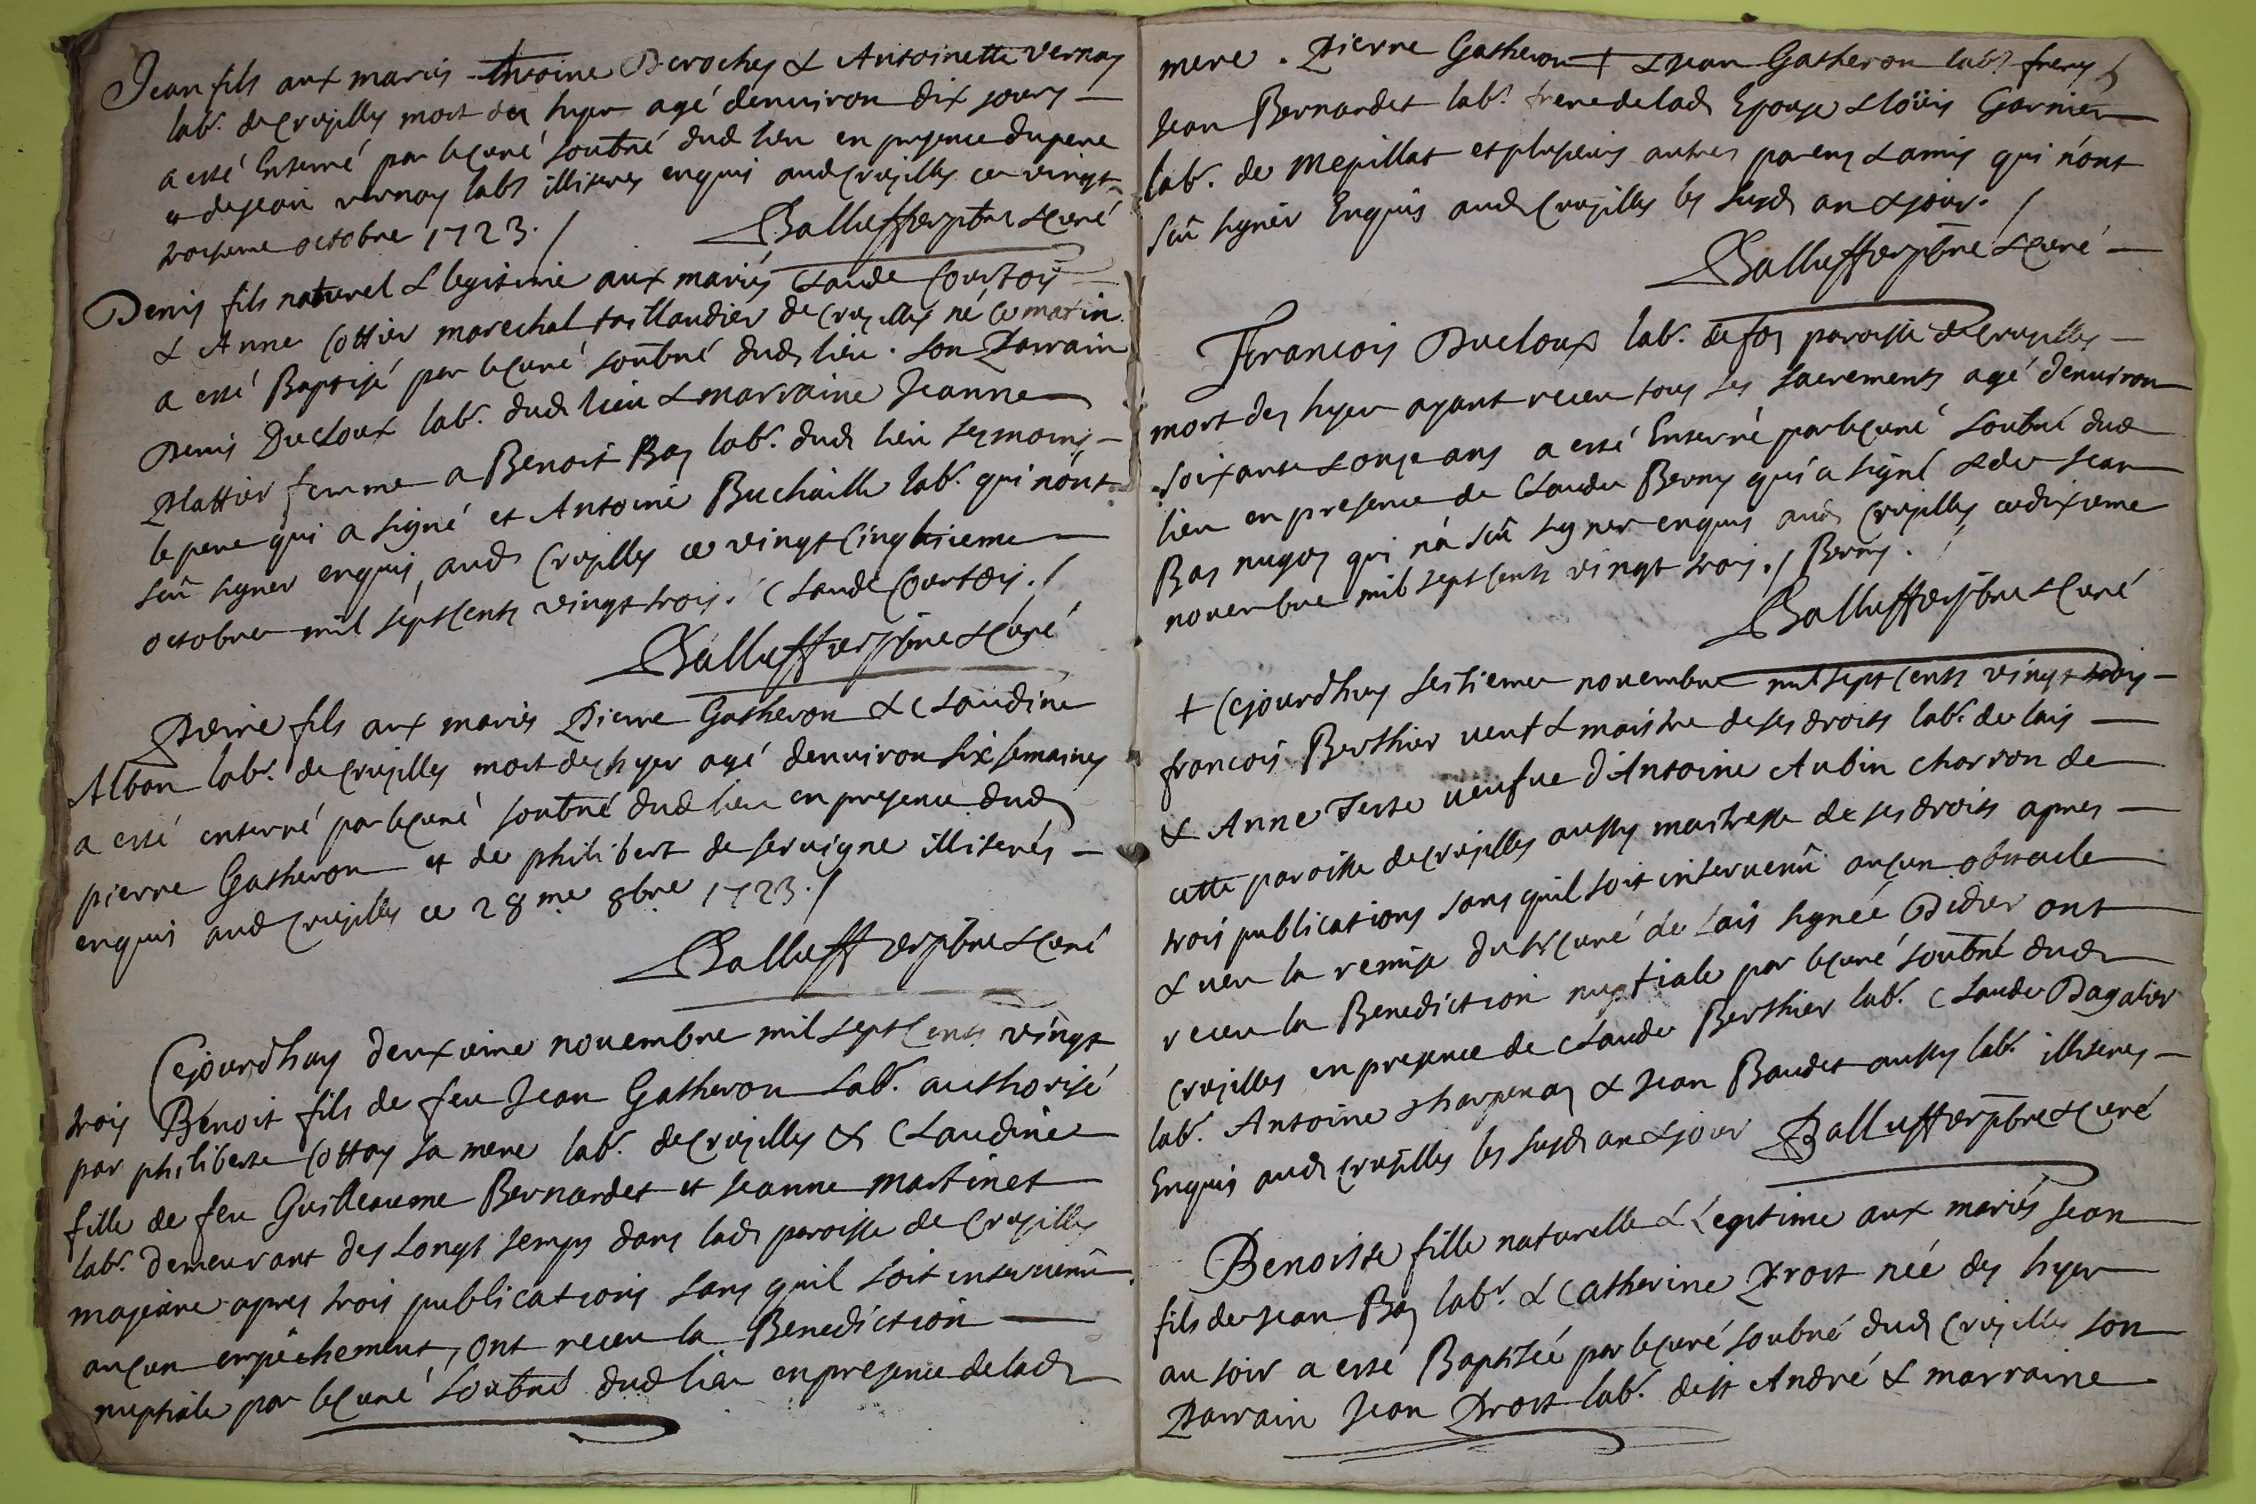 Jean fils aux mariés Antoine Deroches & Antoinette Vernay
labr. de Crusilles mort des hyer agé denuiron dix jours
a esté Enterré par le Curé soubné dud lieu en presence du pere
& de Jean vernay labrs illiteres enquis aud Crusilles ce vingt
troisieme octobre 1723./
Balluffier pbre & Curé
Denis fils naturel & legitime aux mariés Claude Courtois
& Anne Cottier marechal taillandier de Crusilles né ce matin
a esté Baptisé par le Curé soubné dud lieu. Son Parrain
Denis Ducloux labr. dud lieu & marraine Jeanne
Plattier femme a Benoit Bay labr. dud lieu tesmoins
le pere qui a signé et Antoine Buchaille labr. qui n'ont
sçû signer enquis, aud Crusilles ce vingt cinquieme
octobre mil sept cents vingt trois. Claude Courtois./
Balluffier pbre & Curé
Pierre fils aux mariés Pierre Gatheron & Claudine
Alban labr. de Crusilles mort des hyer agé denuiron six semaines
a esté enterré par le Curé soubné dud lieu en presence dud
pierre Gatheron et de philibert de seruigne illiterés
enquis aud Crusilles ce 28me 8bre 1723./
Balluffier pbre & Curé
Cejourdhuy deuxieme novembre mil sept Cents vingt
trois Benoit fils de feu Jean Gatheron Labr. authorisé
par philiberte Cottay sa mere labr. de Crusilles & Claudine
fille de feu Guilleaume Bernardet et Jeanne Martinet
labr. demeurant des longt temps dans lad paroisse de Crusilles
majeure apres trois publications sans quil soit interuenû
auçun empêchement, ont receu la Benediction
nuptiale par le Curé soubné dud lieu en presence de lad
mere. Pierre Gatheron + & Jean Gatheron labrs freres
Jean Bernardet labr. frere de lad Epouse & Loüis Garnier
labr. de Mepillat et plusieurs autres parens & amis qui n'ont
sçû signer Enquis aud Crusilles les susd an & jour./
Balluffier pbre & Curé
Francois Ducloux labr. de foy paroisse de Crusilles
mort des hyer ayant receu tous les sacrements agé denuiron
soixante & onze ans a esté Enterré par le Curé soubné dud
lieu en presence de Claude Berny qui a signé & de Jean
Bay nugoy qui n'a sçû signer enquis aud Crusilles ce dixieme
novembre mil sept cents vingt trois./ Berny.
Balluffier pbre & Curé
+ Cejourdhuy septieme novembre mil sept Cents vingt trois
francois Berthier veuf & maistre de ses droits labr. de lais
& Anne Terte veufue d'Antoine Aubin charron de
cette paroisse de Crusilles aussy maitresse de ses droits apres
trois publications sans quil soit interuenû auçun obstacle
& ueu la remise du sr Curé de Lais signée Didier ont
receu la Benediction nuptiale par le Curé soubné dud
Crusilles en presence de Claude Berthier labr. Claude Dagalier
labr. Antoine Charpenay & Jean Baudet aussy labr. illiteres
Enquis aud Crusilles les susd an & jour Balluffier pbre & Curé
Benoiste fille naturelle & Legitime aux mariés Jean
fils de Jean Bay labr. & Catherine Prost née des hyer
au soir a esté Baptisée par le Curé soubné dud Crusilles son
Parrain Jean Prost labr. de st André & marraine